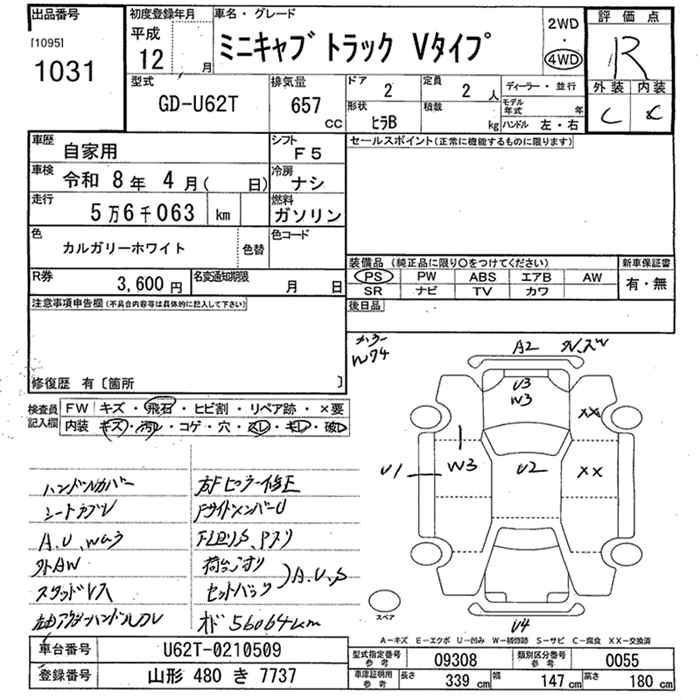 出品番号
[1095]
1031
初度登録年月
平成
12 月
車名・グレード
ミニキャブ トラック Vタイプ
2WD
・
4WD
評価点
R
外装 内装
C
型式
GD-U62T
排気量
657
CC
ドア
2
定員
2 人
形状
ヒラB
積載
kg
ディーラー・並行
モデル年式 年
ハンドル 左・右
車歴
自家用
シフト
F5
車検
令和 8年 4月( 日)
冷房
ナシ
走行
5万6千063 km
燃料
ガソリン
色
カルガリーホワイト
色替
色コード
R券
3,600 円
名変通知期限
月 日
セールスポイント(正常に機能するものに限ります)
装備品(純正品に限り○をつけてください)
PS PW ABS エアB AW
SR ナビ TV カワ
新車保証書
有・無
後日品
注意事項申告欄(不具合内容等は具体的に記入して下さい)
修復歴 有〔箇所 〕
検査員記入欄
FW キズ・飛石・ヒビ割・リペア跡・×要
内装 キズ・汚レ・コゲ・穴・スレ・キレ・破レ
カラー
W74
A2
U3
W3
XX
U1
W3
U2
XX
U4
スペア
ハンドルカバー
シートヤブレ
A.U.Wあり
外AW
右Fピラー修正
FサイドメンバーU
セットバック
A.U.S
56064km
A-キズ E-エクボ U-凹み W-補修跡 S-サビ C-腐食 XX-交換済
車台番号
U62T-0210509
登録番号
山形 480 き 7737
型式指定番号
参考
09308
類別区分番号
参考
0055
車庫証明用
参考
長さ
339 cm
幅
147 cm
高さ
180 cm